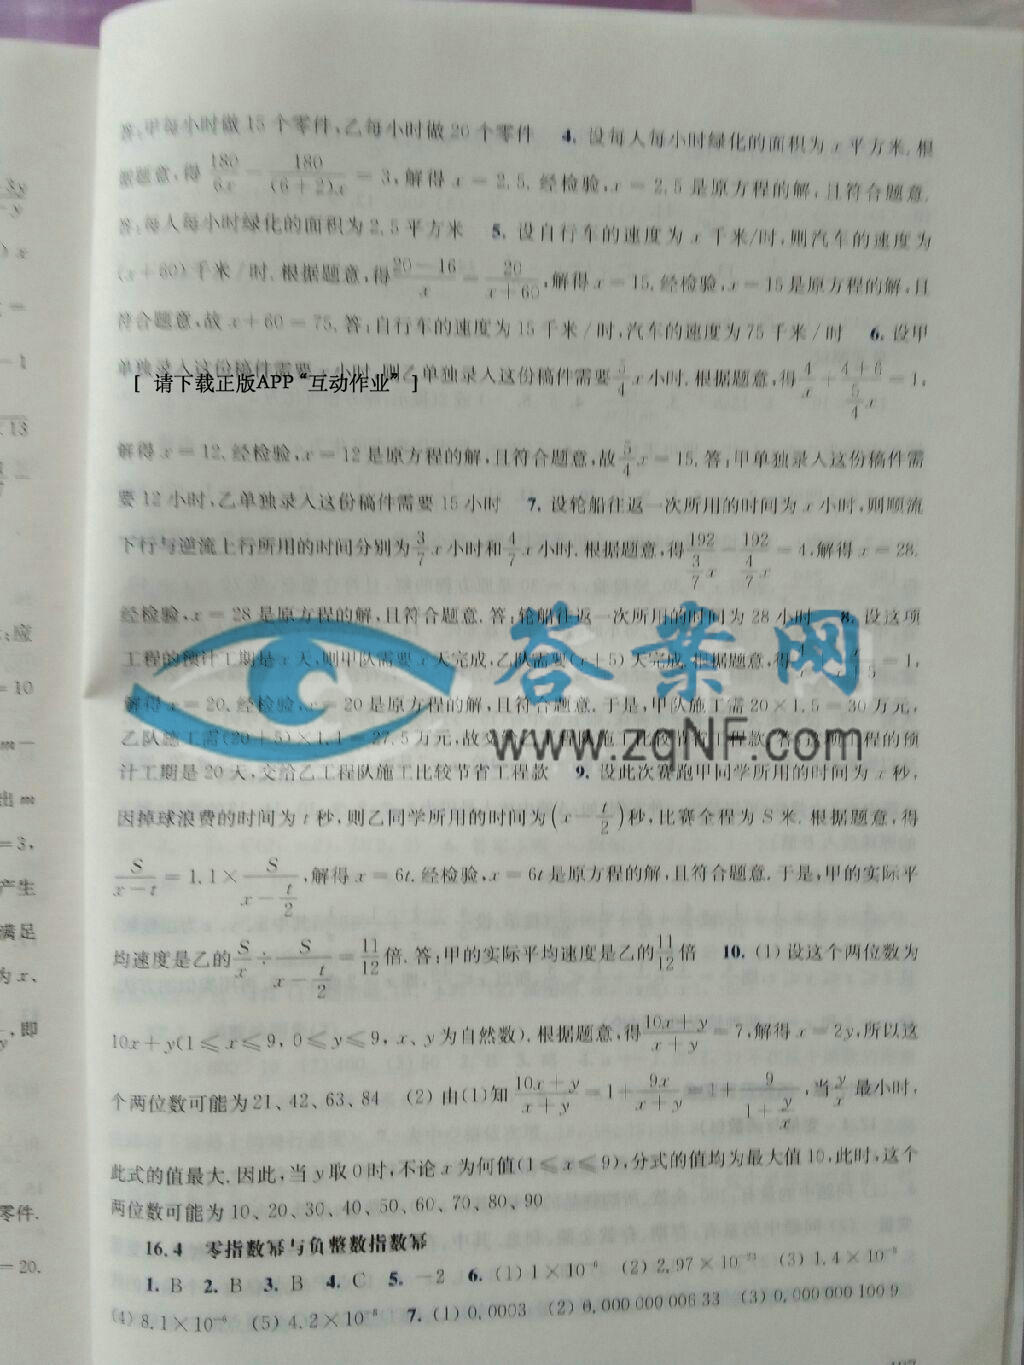 答:甲每小时做15个零件,乙每小时做20个零件 4. 设每人每小时绿化的面积为x平方米.根
据题意,得180/6x－180/(6＋2)x＝3,解得x＝2.5.经检验,x＝2.5是原方程的解,且符合题意.
答:每人每小时绿化的面积为2.5平方米 5. 设自行车的速度为x千米/时,则汽车的速度为
(x＋60)千米/时.根据题意,得20－16/x＝20/x＋60,解得x＝15.经检验,x＝15是原方程的解,且
符合题意,故x＋60＝75.答:自行车的速度为15千米/时,汽车的速度为75千米/时 6. 设甲
单独录入这份稿件需要x小时,则乙单独录入这份稿件需要5/4x小时.根据题意,得4/x＋4＋6/(5/4x)＝1,
[ 请下载正版APP“互动作业” ]
解得x＝12.经检验,x＝12是原方程的解,且符合题意,故5/4x＝15.答:甲单独录入这份稿件需
要12小时,乙单独录入这份稿件需要15小时 7. 设轮船往返一次所用的时间为x小时,则顺流
下行与逆流上行所用的时间分别为3/7x小时和4/7x小时.根据题意,得192/(3/7x)－192/(4/7x)＝4,解得x＝28.
经检验,x＝28是原方程的解,且符合题意.答:轮船往返一次所用的时间为28小时 8. 设这项
工程的预计工期是x天,则甲队需要x天完成,乙队需要(x＋5)天完成.根据题意,得 ＝1,
解得x＝20.经检验,x＝20是原方程的解,且符合题意.于是,甲队施工需20×1.5＝30万元,
乙队施工需(20＋5)×1.1＝27.5万元,故交给乙工程队施工比较节省工程款 程的预
计工期是20天,交给乙工程队施工比较节省工程款 9. 设此次赛跑甲同学所用的时间为x秒,
因掉球浪费的时间为t秒,则乙同学所用的时间为(x－t/2)秒,比赛全程为S米.根据题意,得
S/x－t＝1.1×S/(x－t/2),解得x＝6t.经检验,x＝6t是原方程的解,且符合题意.于是,甲的实际平
均速度是乙的S/x÷S/(x－t/2)＝11/12倍.答:甲的实际平均速度是乙的11/12倍 10. (1) 设这个两位数为
10x＋y(1≤x≤9, 0≤y≤9, x、y为自然数).根据题意,得10x＋y/x＋y＝7,解得x＝2y,所以这
个两位数可能为21、42、63、84 (2) 由(1)知10x＋y/x＋y＝1＋9x/x＋y＝1＋9/(1＋y/x),当y/x最小时,
此式的值最大.因此,当y取0时,不论x为何值(1≤x≤9),分式的值均为最大值10,此时,这个
两位数可能为10、20、30、40、50、60、70、80、90
16.4 零指数幂与负整数指数幂
1. B 2. B 3. B 4. C 5. －2 6. (1) 1×10 (2) 2.97×10 (3) 1.4×10
(4) 8.1×10 (5) 4.2×10 7. (1) 0.0003 (2) 0.000 000 006 33 (3) 0.000 000 100 9
答案网
www.zqNF.com